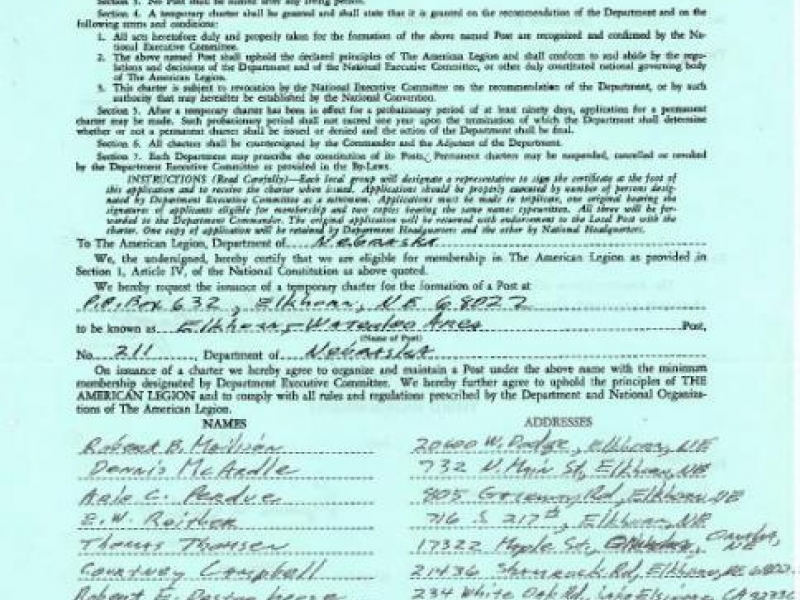 Section 3. No Post shall be named after any living person.
Section 4. A temporary charter shall be granted and shall state that it is granted on the recommendation of the Department and on the
following terms and conditions:
1. All acts heretofore duly and properly taken for the formation of the above named Post are recognized and confirmed by the Na-
tional Executive Committee.
2. The above named Post shall uphold the declared principles of The American Legion and shall conform to and abide by the regu-
lations and decisions of the Department and of the National Executive Committee, or other duly constituted national governing body
of The American Legion.
3. This charter is subject to revocation by the National Executive Committee on the recommendation of the Department, or by such
authority that may hereafter be established by the National Convention.
Section 5. After a temporary charter has been in effect for a probationary period of at least ninety days, application for a permanent
charter may be made. Such probationary period shall not exceed one year upon the termination of which the Department shall determine
whether or not a permanent charter shall be issued or denied and the action of the Department shall be final.
Section 6. All charters shall be countersigned by the Commander and the Adjutant of the Department.
Section 7. Each Department may prescribe the constitution of its Posts. Permanent charters may be suspended, cancelled or revoked
by the Department Executive Committee as provided in the By-Laws.
INSTRUCTIONS (Read Carefully)—Each local group will designate a representative to sign the certificate at the foot of
this application and to receive the charter when issued. Applications should be properly executed by number of persons desig-
nated by Department Executive Committee as a minimum. Applications must be made in triplicate, one original bearing the
signatures of applicants eligible for membership and two copies bearing the same names typewritten. All three will be for-
warded to the Department Commander. The original application will be returned with endorsement to the Local Post with the
charter. One copy of application will be retained by Department Headquarters and the other by National Headquarters.
To The American Legion, Department of Nebraska
We, the undersigned, hereby certify that we are eligible for membership in The American Legion as provided in
Section 1, Article IV, of the National Constitution as above quoted.
We hereby request the issuance of a temporary charter for the formation of a Post at
P.O. Box 632, Elkhorn, NE 68022
to be known as Elkhorn-Waterloo Area Post,
(Name of Post)
No. 211, Department of Nebraska
On issuance of a charter we hereby agree to organize and maintain a Post under the above name with the minimum
membership designated by Department Executive Committee. We hereby further agree to uphold the principles of THE
AMERICAN LEGION and to comply with all rules and regulations prescribed by the Department and National Organiza-
tions of The American Legion.
NAMES ADDRESSES
Robert B. 20600 W. Dodge, Elkhorn, NE
Dennis McArdle 732 N. Main St, Elkhorn, NE
C. Perdue 805 Rd, Elkhorn NE
E.W. Reither 716 S 217th, Elkhorn, NE
Thomas Thomsen 17322 Maple St., Omaha, NE
Courtney Campbell 21436 Shamrock Rd, Elkhorn, NE
Robert E. 234 White Oak Rd, Lake Elsinore, CA